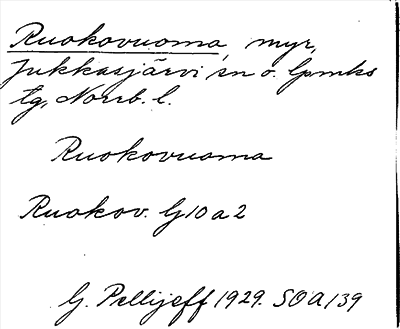 Ruokovuoma, myr,
Jukkasjärvi sn o. lpmks
tg, Norrb. l.
Ruokovuoma
Ruokov. G 10 a 2
G. Pellijeff 1929. SOA 139